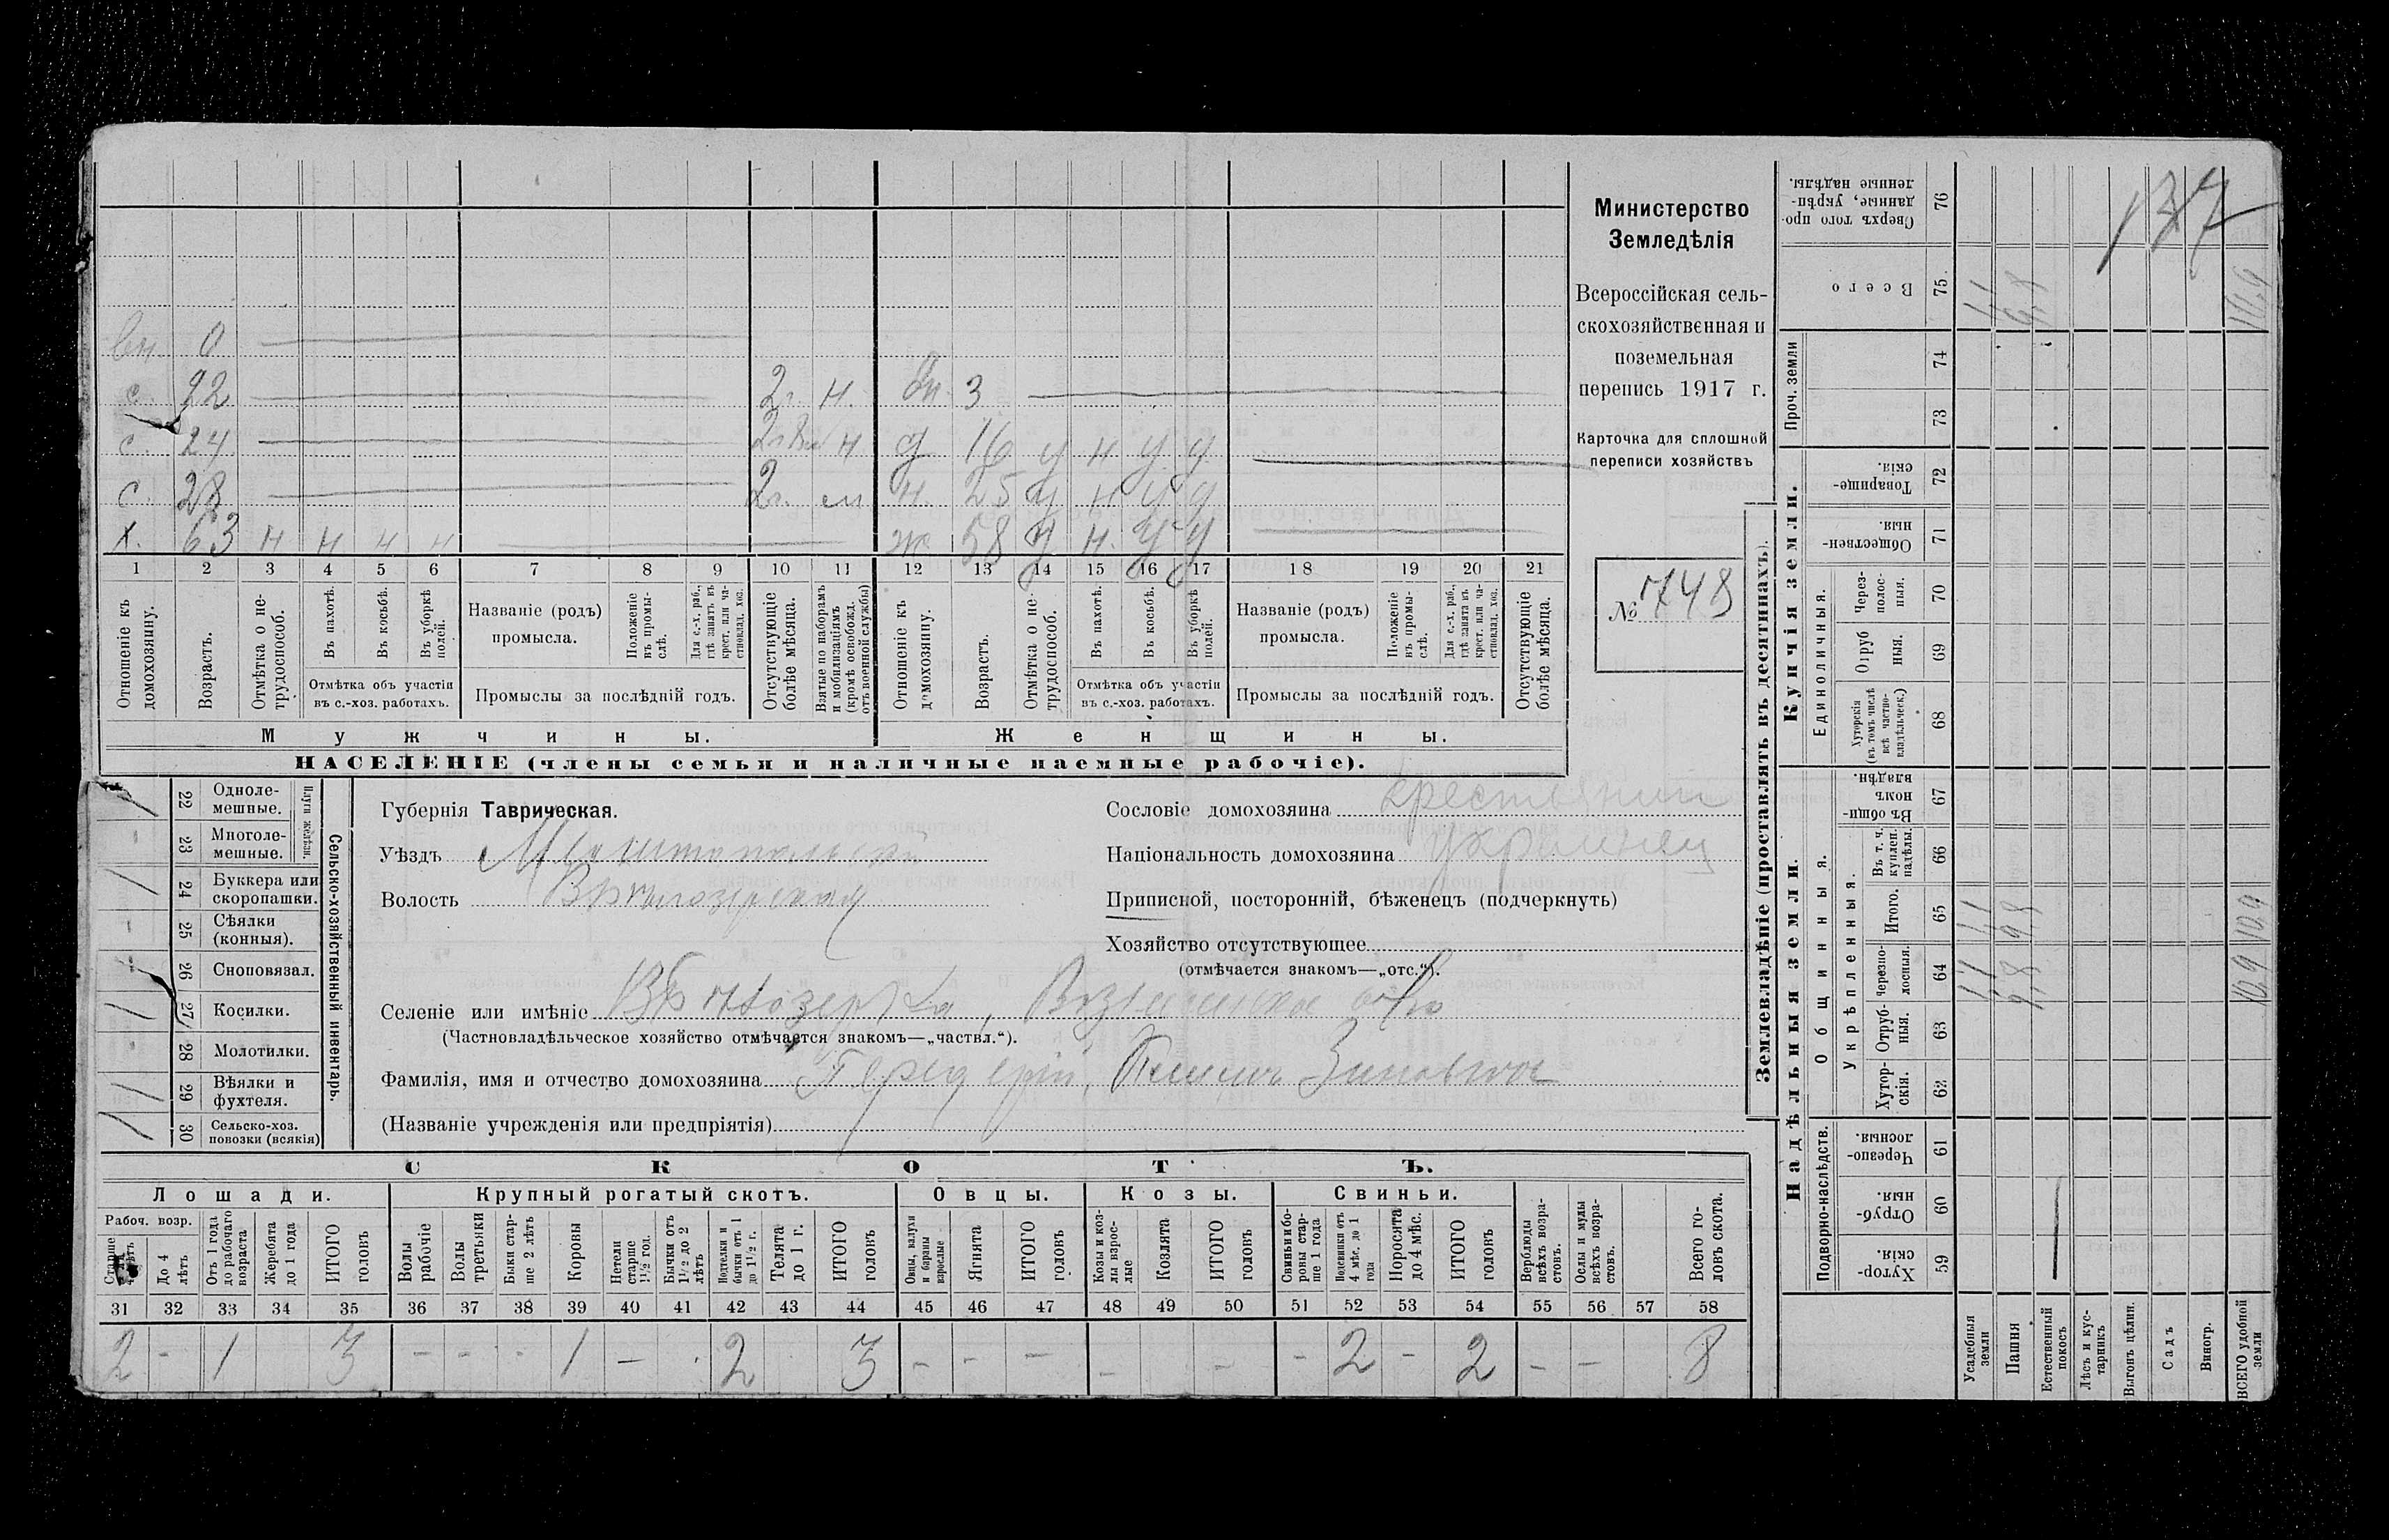 вн 0
с 22 2 г. н. вн. 3
с. 24 н д 16 у н у у
с 28 2 г. н. 25 у н у у
х. 63 н н н н ж 58 у н. у у
1 2 3 4 5 6 7 8 9 10 11 12 13 14 15 16 17 18 19 20 21
Отношеніе къ домохозяину.
Возрастъ.
Отмѣтка о не-трудоспособ.
Въ пахотѣ.
Въ косьбѣ.
Въ уборкѣ полей.
Отмѣтка объ участіи въ с.-хоз. работахъ.
Названіе (родъ) промысла.
Положеніе въ промы-слѣ.
Для с.-х. раб., гдѣ занятъ въ крест. или ча-стновлад. хоз.
Промыслы за послѣдній годъ.
Отсутствующіе болѣе мѣсяца.
Взятые по наборамъ и мобилизаціямъ (кромѣ освобожд. отъ военной службы)
Отношеніе къ домохозяину.
Возрастъ.
Отмѣтка о не-трудоспособ.
Въ пахотѣ.
Въ косьбѣ.
Въ уборкѣ полей.
Отмѣтка объ участіи въ с.-хоз. работахъ.
Названіе (родъ) промысла.
Положеніе въ промы-слѣ.
Для с.-х. раб., гдѣ занята въ крест. или ча-стновлад. хоз.
Промыслы за послѣдній годъ.
Отсутствующіе болѣе мѣсяца.
Мужчины.
Женщины.
НАСЕЛЕНІЕ (члены семьи и наличные наемные рабочіе).
Министерство
Земледѣлія
Всероссійская сель-
скохозяйственная и
поземельная
перепись 1917 г.
Карточка для сплошной
переписи хозяйствъ
№ 1748
Сельско-хозяйственный инвентарь.
Плуги желѣзн.
22 Однолемешные.
23 Многолемешные.
24 Буккера или скоропашки.
25 Сѣялки (конныя).
26 Сноповязал.
27 Косилки.
28 Молотилки.
29 Вѣялки и фухтеля.
30 Сельско-хоз. повозки (всякія)
Губернія Таврическая.
Уѣздъ Мелитопольскій
Волость
Сословіе домохозяина крестьянин
Національность домохозяина украинец
Приписной, посторонній, бѣженецъ (подчеркнуть)
Хозяйство отсутствующее
(отмѣчается знакомъ—„отс.“).
Селеніе или имѣніе
(Частновладѣльческое хозяйство отмѣчается знакомъ—„частвл.“).
Фамилія, имя и отчество домохозяина
(Названіе учрежденія или предпріятія)
СКОТЪ.
Лошади. Крупный рогатый скотъ. Овцы. Козы. Свиньи.
Рабоч. возр.
До 4 лѣтъ
Отъ 1 года до рабочаго возраста
Жеребята до 1 года
ИТОГО головъ
Волы рабочіе
Волы третьяки
Быки стар-ше 2 лѣтъ
Коровы
Нетели старше 1½ год.
Бычки отъ 1½ до 2 лѣтъ
Подтелки и бычки отъ 1 до 1½ г.
Телята до 1 г.
ИТОГО головъ
Овцы, валухи и бараны взрослые
Ягнята
ИТОГО головъ
Козы и коз-лы взрос-лые
Козлята
ИТОГО головъ
Свиньи и бо-ровы стар-ше 1 года
Подсвинки отъ 4 мѣс. до 1 года
Поросята до 4 мѣс.
ИТОГО головъ
Верблюды всѣхъ возра-стовъ.
Ослы и мулы всѣхъ возра-стовъ.
Всего го-ловъ скота.
31 32 33 34 35 36 37 38 39 40 41 42 43 44 45 46 47 48 49 50 51 52 53 54 55 56 57 58
2 - 1 3 - - - 1 - 2 3 - - - - - - 2 - 2 - - 8
Землевладѣніе (проставлять въ десятинахъ).
Купчія земли.
Надѣльныя земли.
Сверхъ того про-данные, укрѣп-ленные надѣлы. 76
Всего 75 1,1 9,8 10,9
137
Проч. земли 74 73
Товарище-скія. 72
Обществен-ныя. 71
Единоличныя.
Черезполосныя. 70
Отрубныя. 69
Хуторскія (въ томъ числѣ всѣ частно-владѣльческ.) 68
Общинныя.
Въ общинномъ владѣн. 67
Укрѣпленныя.
Въ т. ч. куплен. надѣлы. 66
Итого. 65 1,1 9,8 10,9
Черезполосныя. 64 1,1 9,8 10,9
Отрубныя. 63
Хуторскія. 62
Подворно-наслѣдств.
Черезполосныя. 61
Отрубныя. 60
Хуторскія. 59
Усадебныя земли
Пашня
Естественный покосъ
Лѣсъ и кустарникъ
Выгонъ цѣлин.
Садъ
Виногр.
ВСЕГО удобной земли